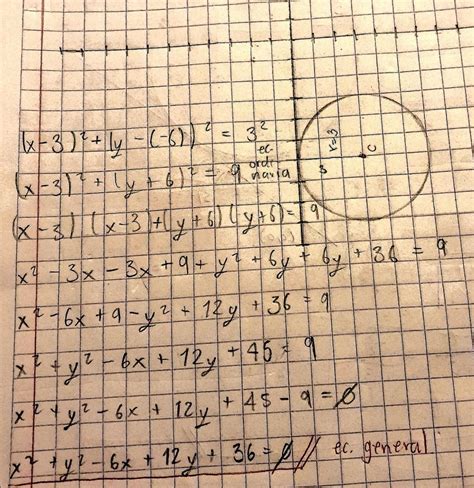 (x-3)² + (y-(-6))² = 3²
(x-3)² + (y+6)² = 9 ec. ordinaria
(x-3)(x-3)+(y+6)(y+6)=9
x² - 3x - 3x + 9 + y² + 6y + 6y + 36 = 9
x² - 6x + 9 - y² + 12y + 36 = 9
x² + y² - 6x + 12y + 45 = 9
x² + y² - 6x + 12y + 45 - 9 = 0
x² + y² - 6x + 12y + 36 = 0 // ec. general
r=3
C